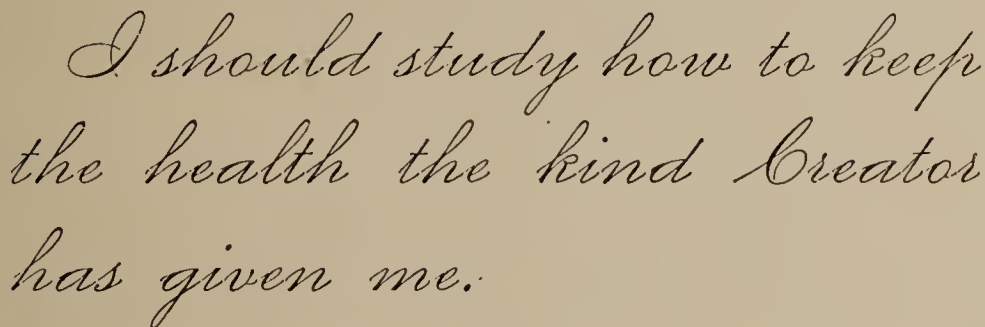 I should study how to keep
the health the kind Creator
has given me.